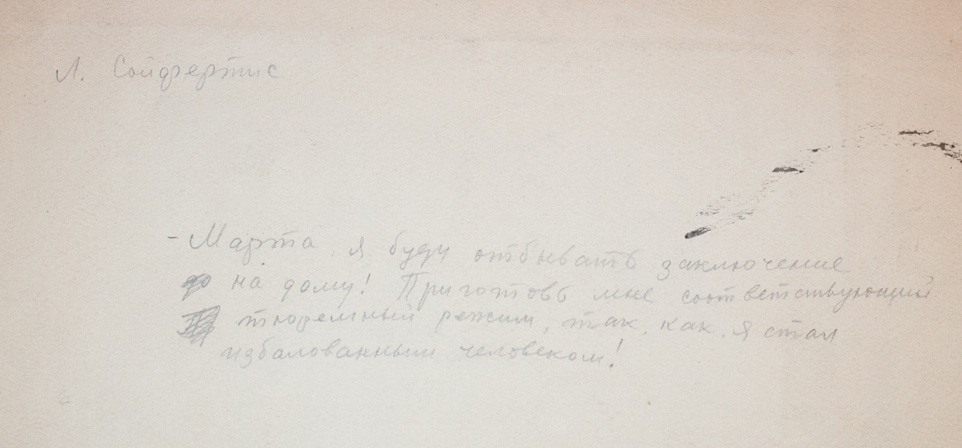 Л. Сойфертис
- Марта, я буду отбывать заключение
на дому! Приготовь мне соответствующий
тюремный режим, так, как я стал
избалованным человеком!